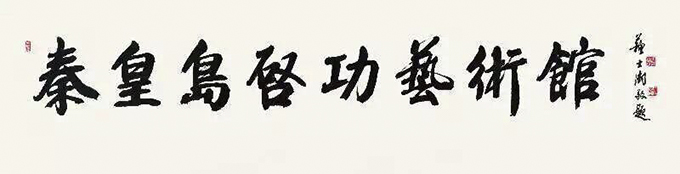 秦皇島啓功藝術館
蘇士澍敬題